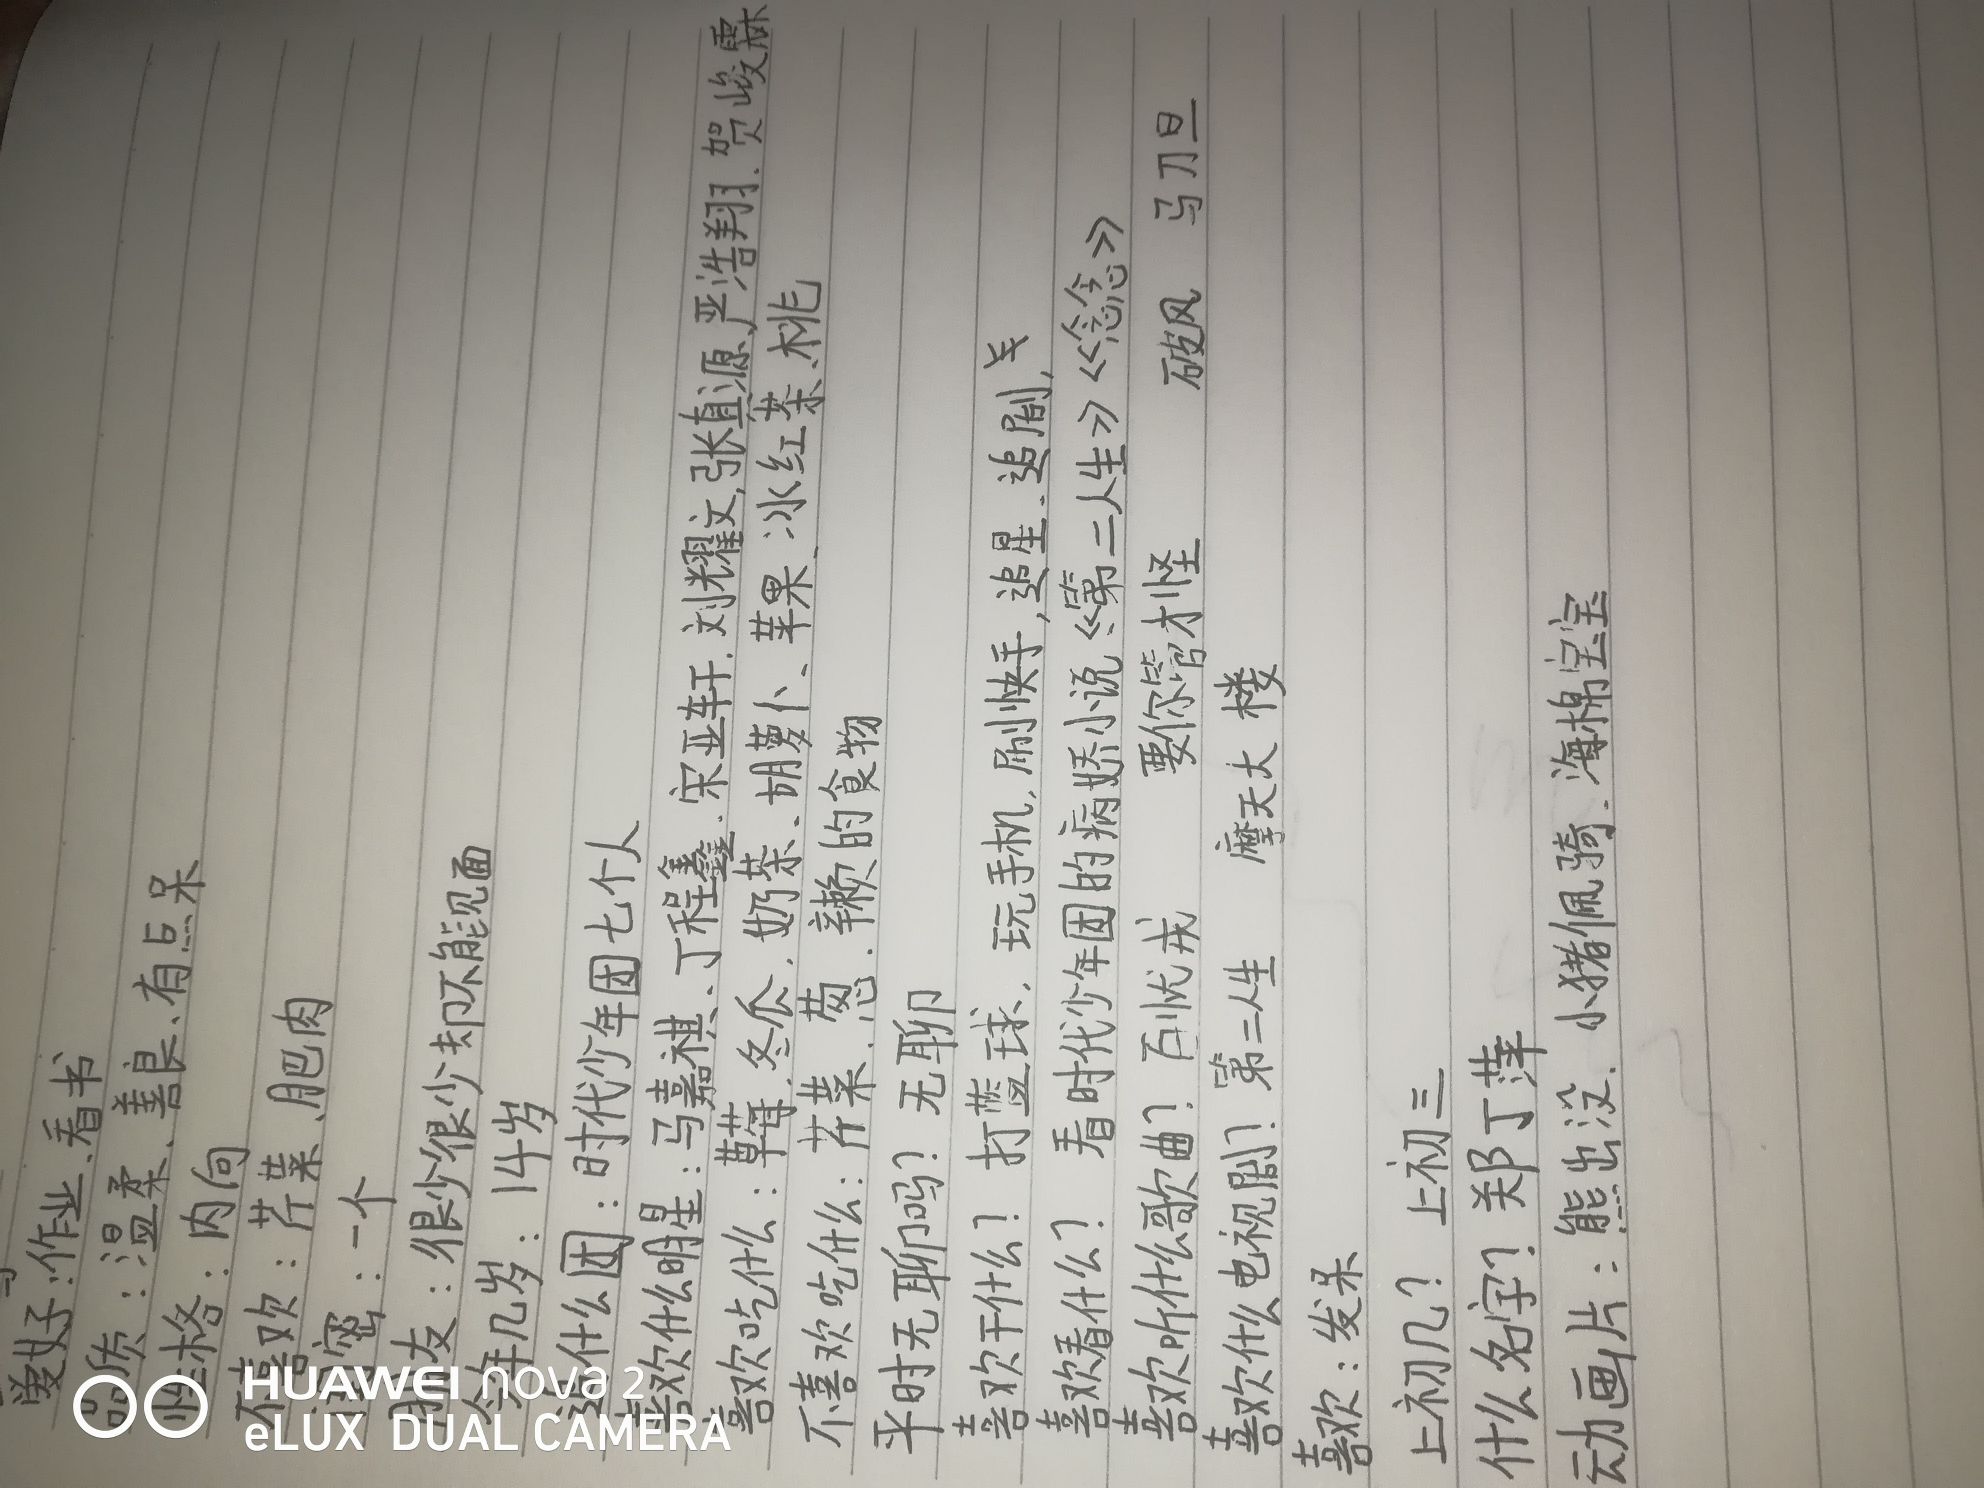 爱好：作业、看书
品质：温柔、善良、有点呆
性格：内向
不喜欢：芹菜、肥肉
闺密：一个
朋友：很少很少却不能见面
今年几岁：14岁
追什么团：时代少年团七个人
喜欢什么明星：马嘉祺、丁程鑫、宋亚轩、刘耀文，张真源、严浩翔、贺峻霖
喜欢吃什么：草莓、冬瓜、奶茶、胡萝卜、苹果、冰红茶、桃
不喜欢吃什么：芹菜、葱、辣的食物
平时无聊吗？无聊
喜欢干什么？打蓝球，玩手机，刷快手，追星、追剧，
喜欢看什么？看时代少年团的病娇小说《第二人生》《念念》
喜欢听什么歌曲？百忧戒 要你管才怪 破风 马刀旦
喜欢什么电视剧？第二人生 摩天大楼
喜欢：发呆
上初几？上初三
什么名字？郑丁萍
动画片：熊出没、小猪佩骑、海棉宝宝
HUAWEI nova 2
eLUX DUAL CAMERA